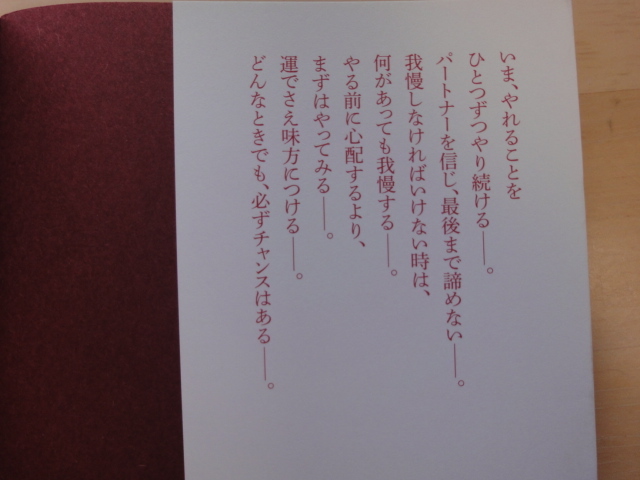 いま、やれることを
ひとつずつやり続ける――。
パートナーを信じ、最後まで諦めない――。
我慢しなければいけない時は、
何があっても我慢する――。
やる前に心配するより、
まずはやってみる――。
運でさえ味方につける――。
どんなときでも、必ずチャンスはある――。